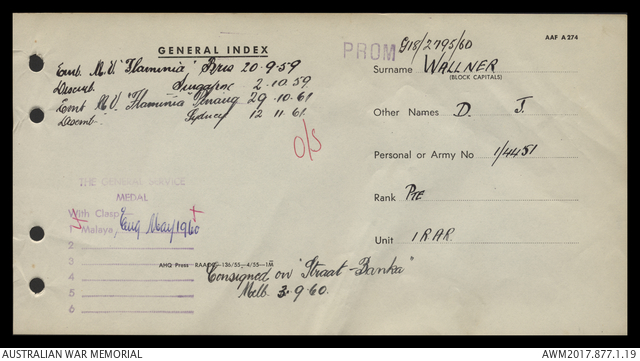 AAF A 274
GENERAL INDEX
PROM 918/2795/60
Emb. M.V. 'Flaminia' Bris 20-9-59
Disemb. Singapore 2-10-59
Emb M.V. 'Flaminia' Penang 29-10-61
Disemb. Sydney 12 11 61
O/S
Surname WALLNER
(BLOCK CAPITALS)
Other Names D. J.
Personal or Army No 1/4451
Rank Pte
Unit 1 RAR.
THE GENERAL SERVICE
MEDAL
With Clasp
1 Malaya, Aug May/1960
2
3
4
5
6
AHQ Press
Consigned on "Straat-Banka"
Melb 3-9-60.
AUSTRALIAN WAR MEMORIAL
AWM2017.877.1.19